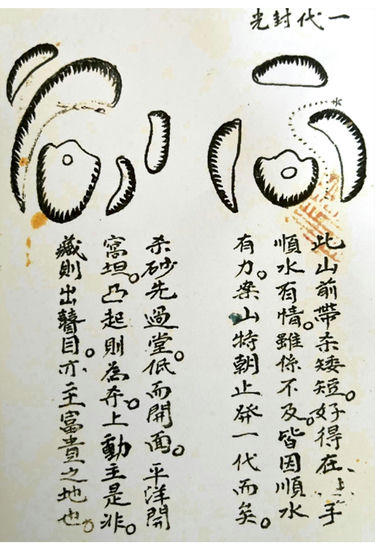 一代封光
此山前帶杀矮短。好得在上手
順水有情。雖係不及。皆因順水
有力。案山特朝止發一代而矣。
杀砂先過堂。低而開面。平洋開
窩坦。凸起則為杀。上動主是非。
藏則出瞽目。亦主富貴之地也。